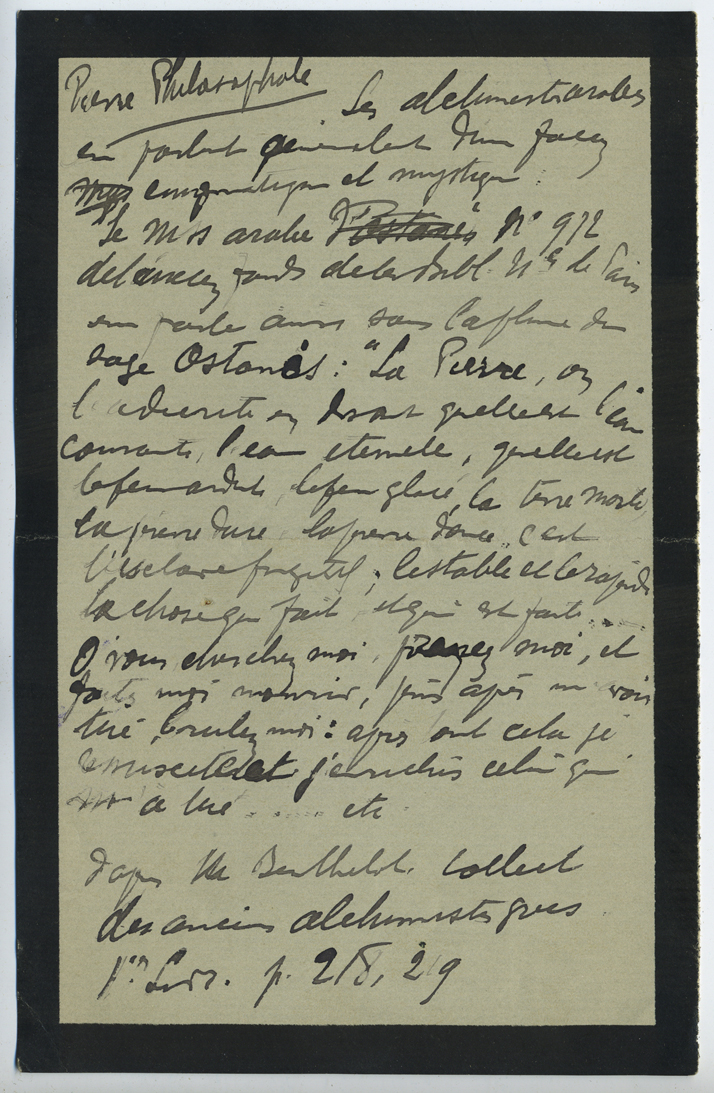 Pierre Philosophale Les alchimists arabes
en parlent généralemt d'une façon
mys enigmatique et mystique :
"Le Mss arabe d'Ostanès N° 972
de l'ancien fonds de la Bibl. Nle de Paris
en parle ainsi sous la plume du
sage Ostanès : "La Pierre, on
l'a decrite en disant quelle est l'eau
courante, l'eau eternelle, quelle est
le feu ardent, le feu glacé, la terre morte,
la pierre dure, la pierre douce, c'est
l'esclave fugitif ; le stable et le rapide
la chose qui fait, et qui est faite ...
O vous cherchez moi, prenez moi, et
faites moi mourir, puis après m'avoir
tué, brulez moi : après tout cela je
ressuscite et j'enrichis celui qui
m'a tué ..... etc
d'après M Berthelot. Collect
des anciens alchimistes grecs
1re Livr. p. 218, 219